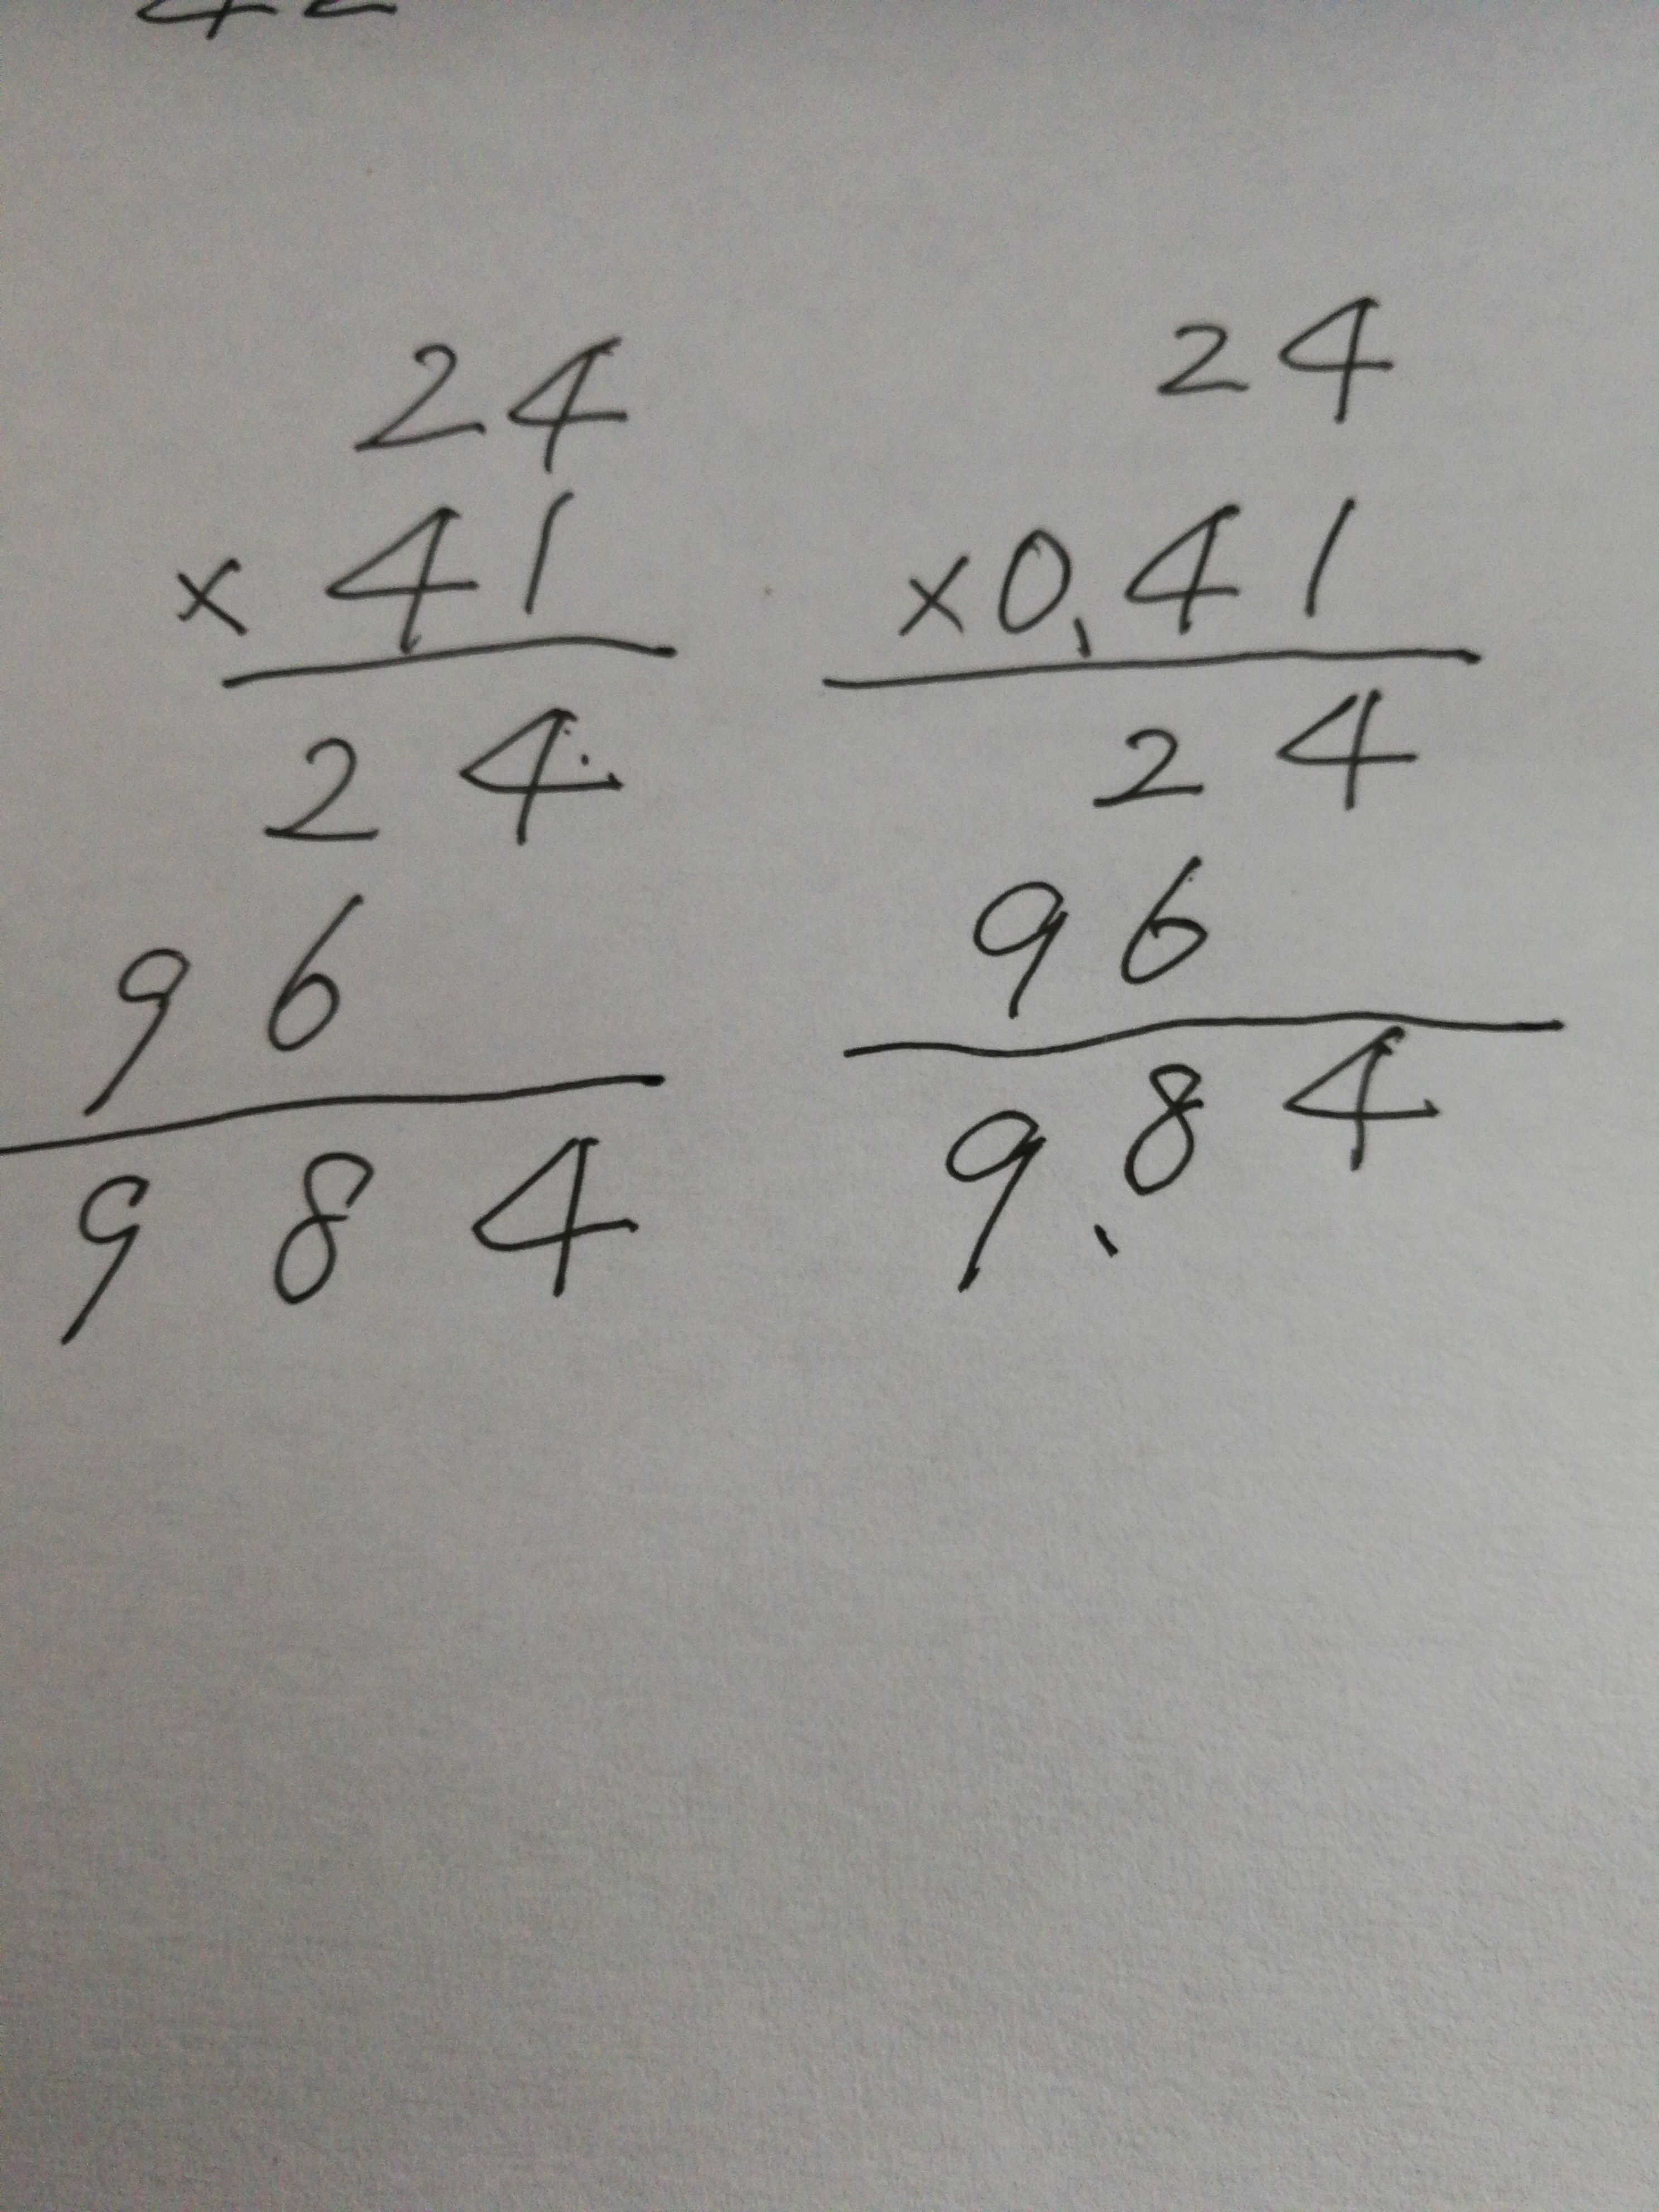 24
× 41
24
96
984
24
×0.41
24
96
9.84